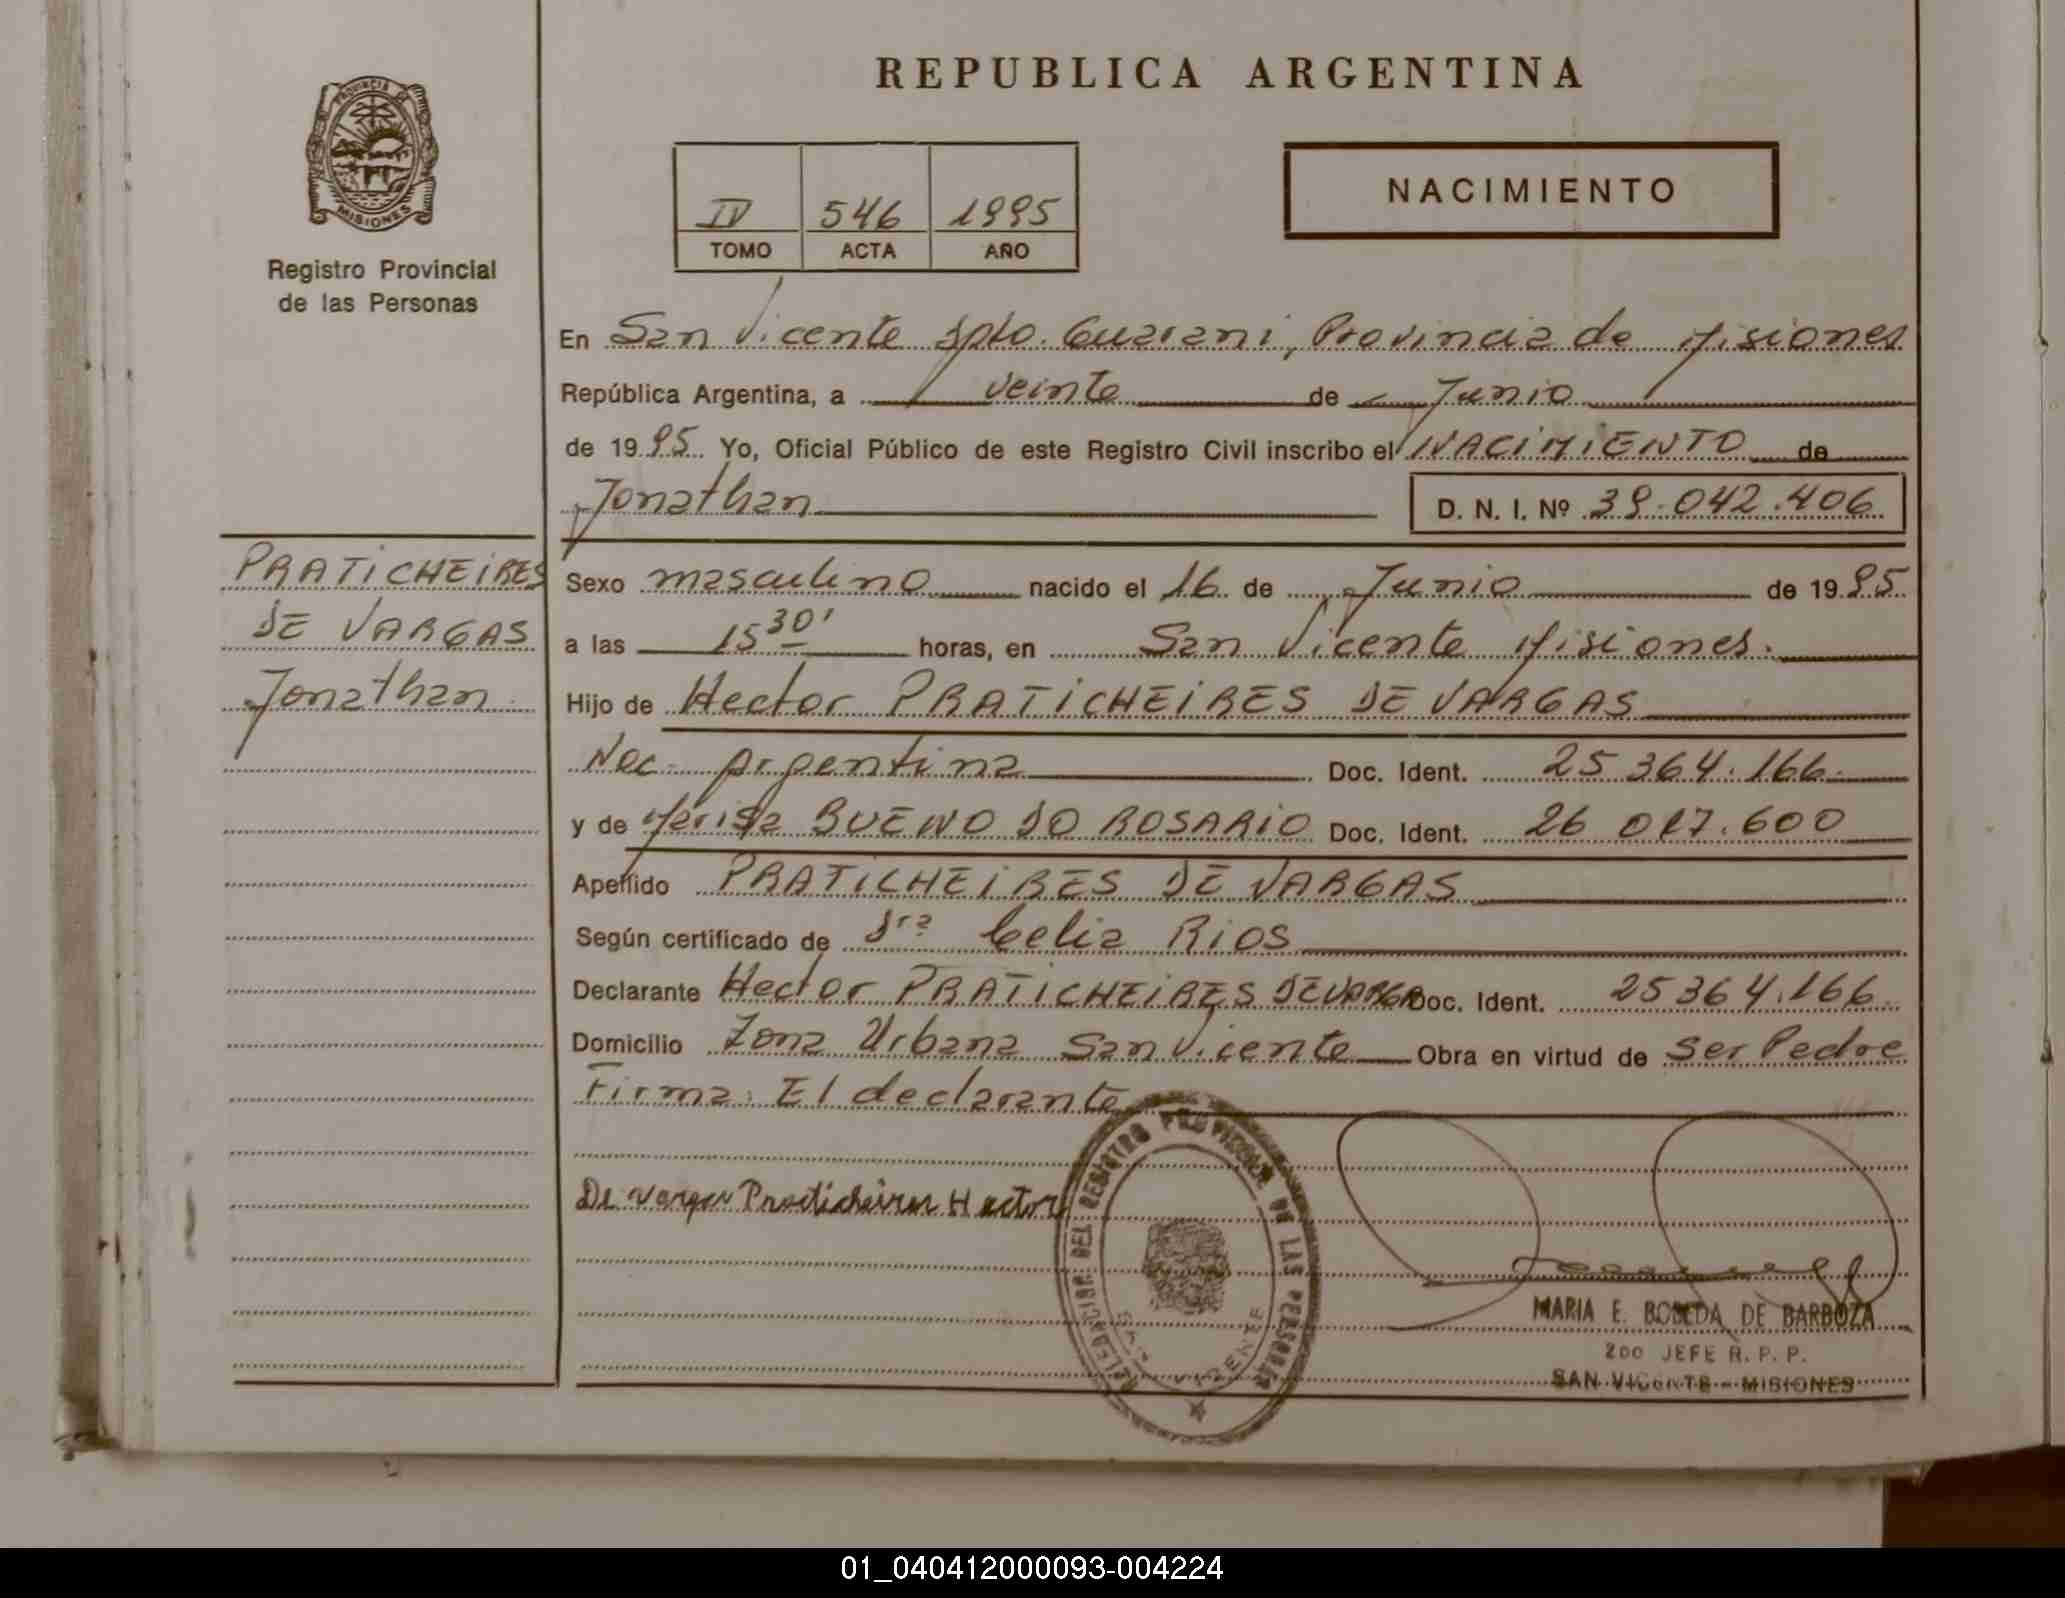 REPUBLICA ARGENTINA
PROVINCIA DE
MISIONES
Registro Provincial
de las Personas
IV 546 1995
TOMO ACTA AÑO
NACIMIENTO
En San Vicente Dpto. Guarani, Provincia de Misiones
República Argentina, a veinte de Junio
de 1995 Yo, Oficial Público de este Registro Civil inscribo el NACIMIENTO de
Jonathan D. N. I. Nº 39.042.406
PRATICHEIRES
DE VARGAS
Jonathan
Sexo masculino nacido el 16 de Junio de 1995
a las 15 30' horas, en San Vicente Misiones.
Hijo de Hector PRATICHEIRES DE VARGAS
Nac. Argentina Doc. Ident. 25 364.166
y de BUENO DO ROSARIO Doc. Ident. 26 017.600
Apellido PRATICHEIRES DE VARGAS
Según certificado de Dra Celia Rios
Declarante Hector PRATICHEIRES DE VARGAS Doc. Ident. 25 364.166
Domicilio Zona Urbana San Vicente Obra en virtud de Ser Padre
Firma: El declarante
De Vargas Praticheires Hector
DELEGACION DEL REGISTRO PROVINCIAL DE LAS PERSONAS
SAN VICENTE
MARIA E. BOBEDA DE BARBOZA
2do JEFE R. P. P.
SAN VICENTE - MISIONES
01_040412000093-004224